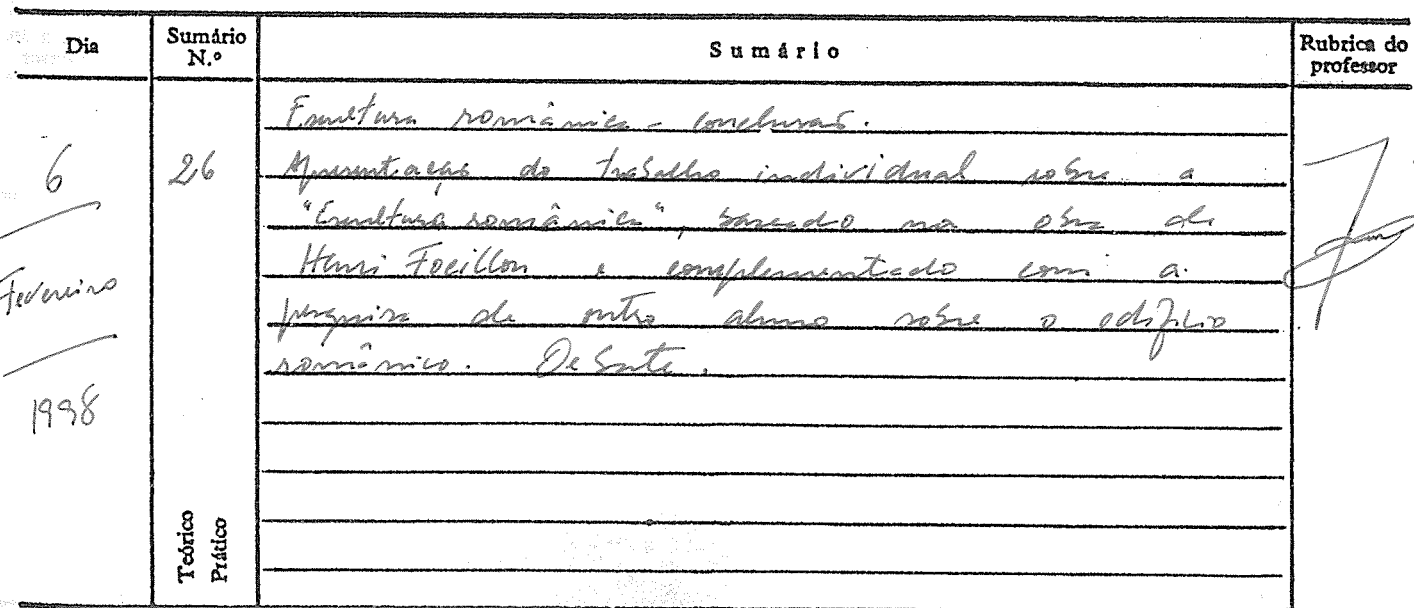 Dia
Sumário N.º
Sumário
Rubrica do professor
6
Fevereiro
1998
26
Teórico
Prático
Escultura românica - conclusão.
Apresentação do trabalho individual sobre a
"Escultura românica", baseado na obra de
Henri Focillon e complementado com a
pesquisa de outro aluno sobre o edifício
românico. Debate.